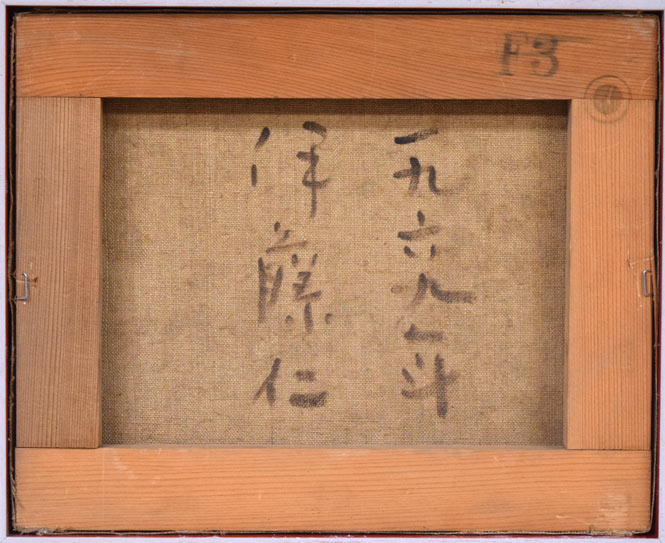 F3
一九六九年
伊藤仁